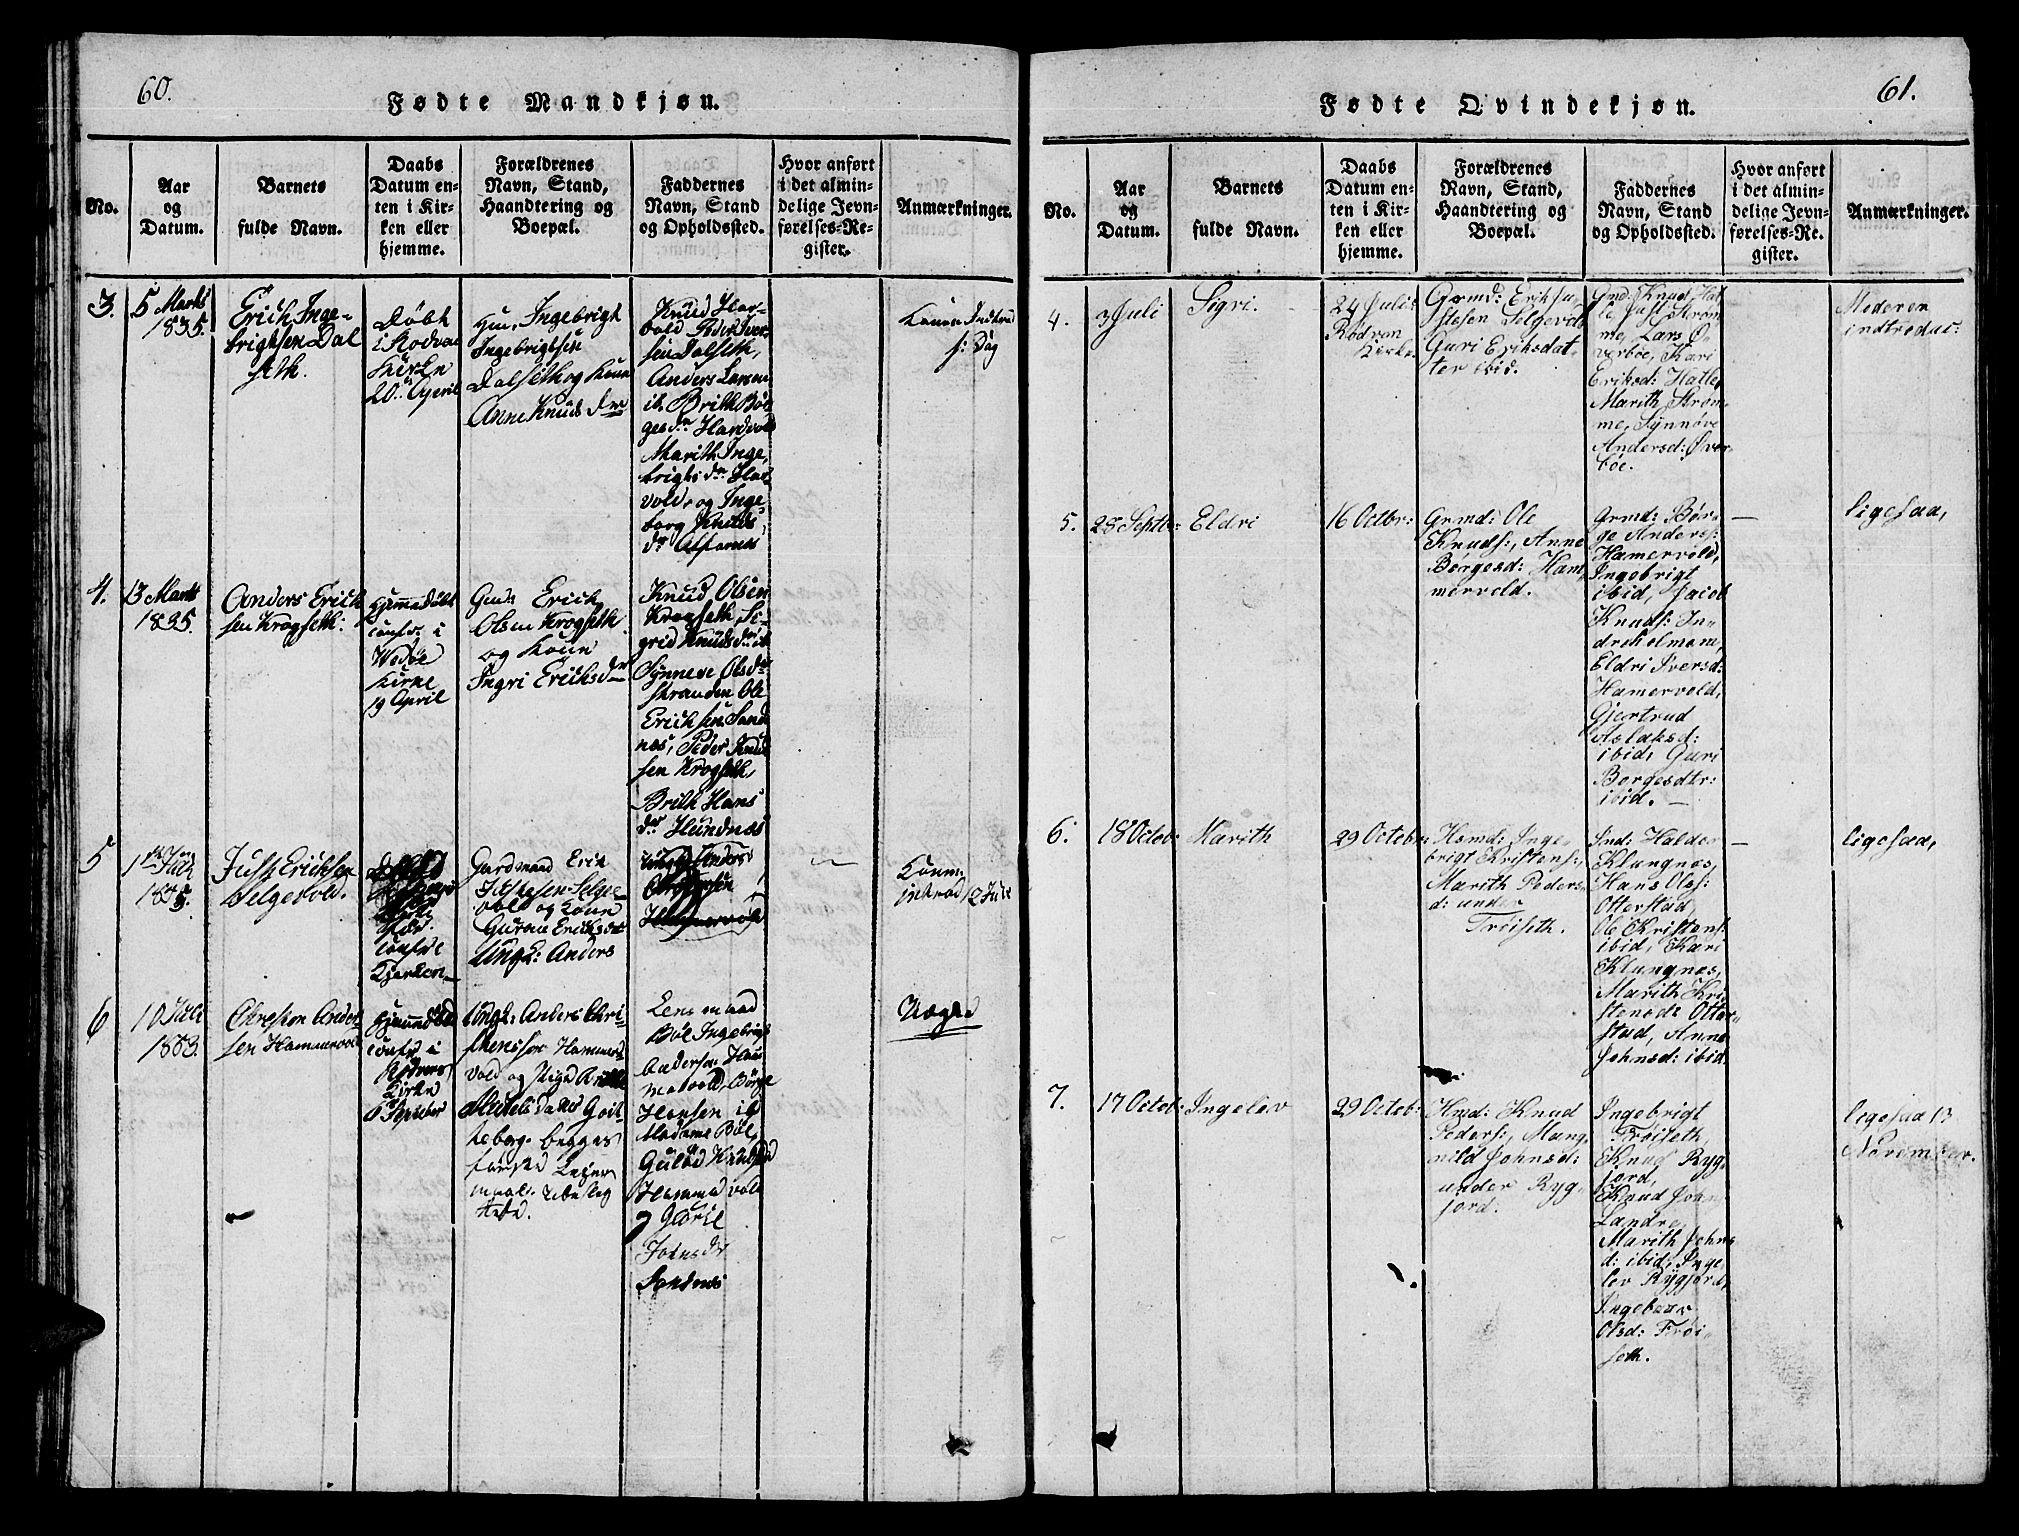 60.
Fødte Mandkjøn.
No.
Aar
og
Datum.
Barnets
fulde Navn.
Daabs
Datum en-
ten i Kir-
ken eller
hjemme.
Forældrenes
Navn, Stand,
Haandtering og
Boepæl.
Faddernes
Navn, Stand
og Opholdssted.
Hvor anført
i det almin-
delige Jevn-
førelses-Re-
gister.
Anmærkninger.
3.
5 Marts
1835.
Erich Inge-
brigtsen Dal
seth.
Døbt
i Rodven
Kirke
20 April
Ingebrigt
Ingebrigtsen
Dalseth og Kone
Anne Knuds dr
Knud Har-
vold Peder Iver
sen Dalseth,
Anders Larsen
ib. Brith Bør
ges dr Hardvold
Marith Inge
brigts dr Har
vold, og Inge-
borg Knuds
dr Alfarnes
Konen Indtraad
s: Dag
4.
13 Marts
1835.
Anders Erich
sen Krogseth.
Hjemmedøbt
confr. i
Wedøe
Kirke
19 April
Erich
Olsen Krogseth
og Kone
Ingri Erichsdr
Knud Olsen
Krogseth, Si-
grid Knudsdr ib
Synneve Olsdr
Stranden Ole
Erichsen Sand
nes, Peder Knud
sen Krogseth,
Brith Hans
dr Hundnæs
5
1 Juli
1835.
Just Erichsen
Selgevold.
confr
Kjerken
Gardmand Erik
Justesen Selge-
vold og Kone
Guroe Ericksdr
Ungk: Anders
Hammervold
Konen
intraad 12 Jule
6
10 Juli
1803.
Christen Ander
sen Hammervold
confr i
Rodvens
Kirke
6 September
Ungk: Anders Chri-
stensen Hammer-
vold og Pige
begges
Leier
maal.
Lensmand
Bøe Ingebrigt
Andersen Ham
mervold, Børge
Hansen ib
Madame Bøe,
Hammervold
Joensdr
Sandnes
Uægte
61.
Fødte Qvindekjøn.
No.
Aar
og
Datum.
Barnets
fulde Navn.
Daabs
Datum en-
ten i Kir-
ken eller
hjemme.
Forældrenes
Navn, Stand,
Haandtering og
Boepæl.
Faddernes
Navn, Stand
og Opholdssted.
Hvor anført
i det almin-
delige Jevn-
førelses-Re-
gister.
Anmærkninger.
4.
3 Juli
Sigri.
24 Juli:
Rodven
Kirke.
Grmd: Erik Ju-
stesen Selgevold
Guri Eriksdat-
ter ibid.
Gmd: Knud Hat-
le, Just Strøm-
me, Lars Ø-
verbøe, Kari
Eriksd: Hatle,
Marith Strøm-
me, Synnøve
Andersd: Øver
bøe.
Moderen
indtrædet:
5.
28 Septbr:
Eldri
16 Octbr:
Grmd: Ole
Knuds:, Anne
Børgesd: Ham-
mervold.
Grmd: Bør-
ge Anders:
Hamervold,
Ingebrigt
ibid, Jacob
Knuds: In-
dreholmem,
Eldri Iversd:
Hamervold,
Gjertrud
Aslaksd:
ibid: Guri
Borgesdtr:
ibid. —
—
ligesaa,
6.
18 Octob:
Marith
29 Octobr:
Hsmd: Inge
brigt Kristens:,
Marith Peders
d: under
Trøiseth.
Ind: Haldor
Klungnes,
Hans Ols:
Otterstad
Ole Kristens:
ibid, Kari
Klungnes,
Marith Kri-
stensd: Otter-
stad, Anne
Johnsd: ibid
—
ligesaa,
7.
17 Octob:
Ingelev
29 Octob:
Hmd: Knud
Peders:, Mang-
nild Johnsd:
under Ryg-
jord.
Ingebrigt
Trøiseth,
Knud Ryg-
jord,
Knud John
Landre,
Marith Johns
d: ibid, Inge-
lev Rygjord,
Ingeborg
Olsd: Trøi-
seth.
ligesaa 13
November.